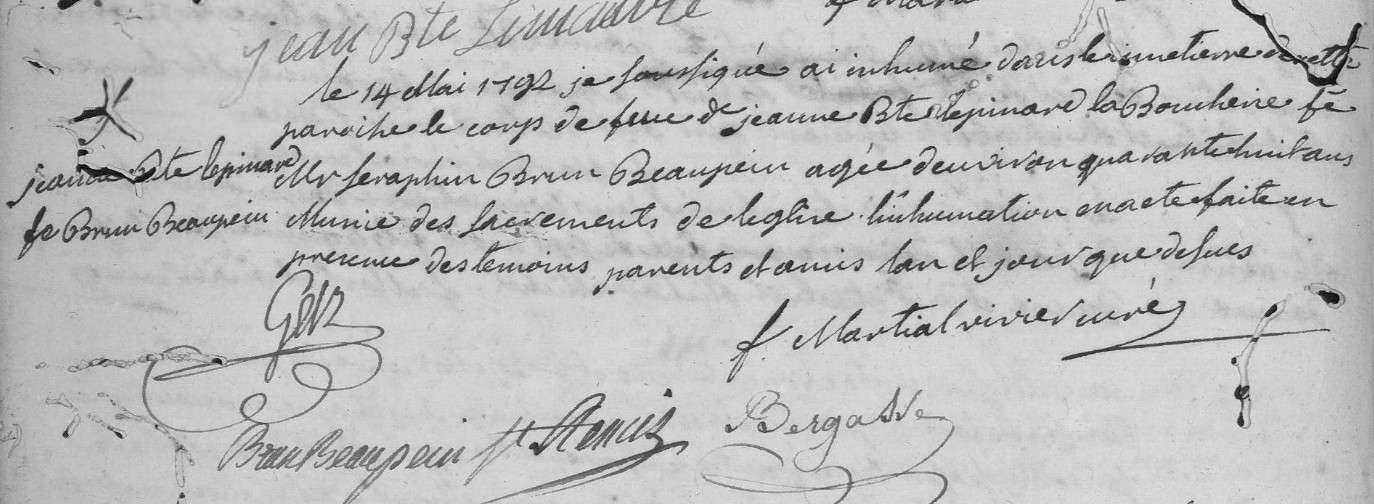 jean Bte
le 14 Mai 1792 je soussigné ai inhumé dans le cimetierre de cette
paroisse le corps de feue de jeanne Bte lepinard la Boucherie fe
Mr seraphin Brun Beaupein agée denviron quarante huit ans
Munie des sacrements de leglise linhumation en a eté faite en
presence des temoins parents et amis lan et jour que dessus
jeanne Bte lepinard
fe Brun Beaupein
f. Martial vivier curé
Brun Beaupein
Bergasse